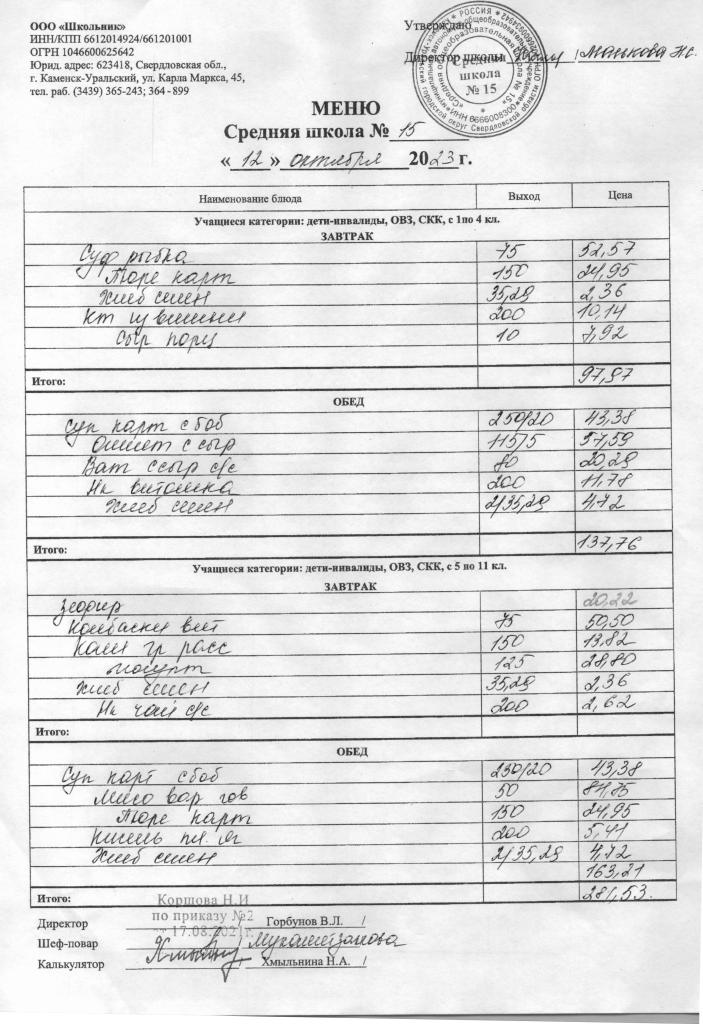 ООО «Школьник»
ИНН/КПП 6612014924/661201001
ОГРН 1046600625642
Юрид. адрес: 623418, Свердловская обл.,
г. Каменск-Уральский, ул. Карла Маркса, 45,
тел. раб. (3439) 365-243; 364 - 899
Утверждаю
Директор школы
Средняя школа № 15
МЕНЮ
Средняя школа № 15
« 12 » октября 2023 г.
Наименование блюда Выход Цена
Учащиеся категории: дети-инвалиды, ОВЗ, СКК, с 1по 4 кл.
ЗАВТРАК
Суф рыбка 75 52,57
Пюре карт 150 24,95
Хлеб пшен 35,29 2,36
Кт из вишни 200 10,14
Сыр порц 10 7,92
Итого: 97,97
ОБЕД
Суп карт с боб 250/20 43,38
Омлет с сыр 115/5 57,59
Ват с сыр с/с 80 20,29
Нк витошка 200 11,78
Хлеб пшен 2/35,29 4,72
Итого: 137,76
Учащиеся категории: дети-инвалиды, ОВЗ, СКК, с 5 по 11 кл.
ЗАВТРАК
Зефир 20,22
Колбаски вит 75 50,50
Каши гр расс 150 13,82
йогурт 125 28,80
Хлеб пшен 35,29 2,36
Нк чай с/с 200 2,62
Итого:
ОБЕД
Суп карт с боб 250/20 43,38
Мясо вар гов 50 84,75
Пюре карт 150 24,95
Кисель пл. яг 200 5,41
Хлеб пшен 2/35,29 4,72
163,21
Итого: 281,53
Коршова Н.И
по приказу №2
от 17.08.2021г.
Директор / Горбунов В.Л. /
Шеф-повар / Мухаметзянова
Калькулятор / Хмыльнина Н.А. /